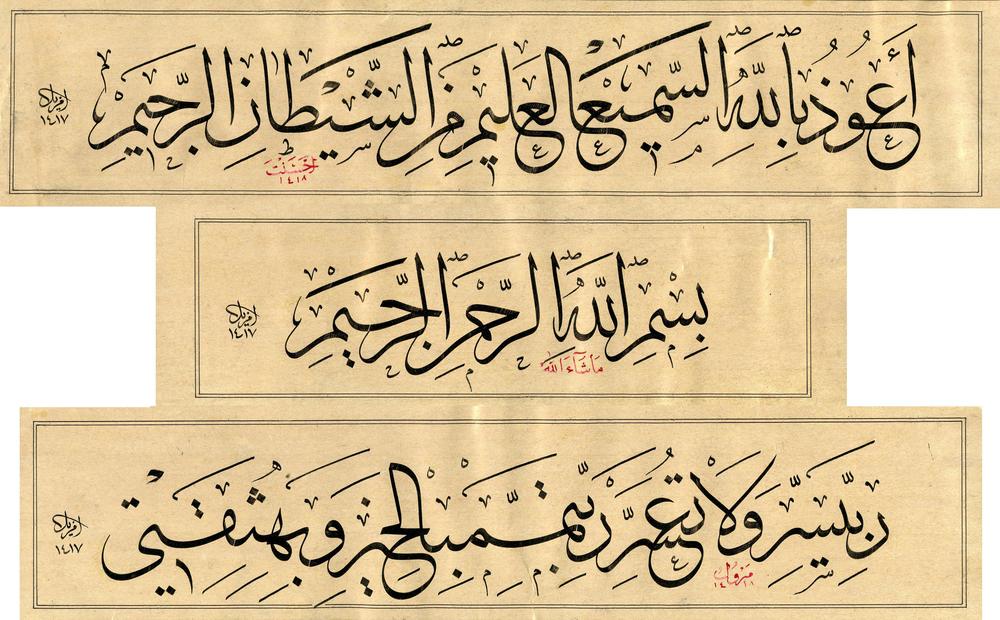 أعوذ بالله السميع العليم من الشيطان الرجيم
أحسنت
١٤١٨
١٤١٧
بسم الله الرحمن الرحيم
ما شاء الله
١٤١٧
رب يسر ولا تعسر رب تمم بالخير وبه ثقتي
١٤١٧